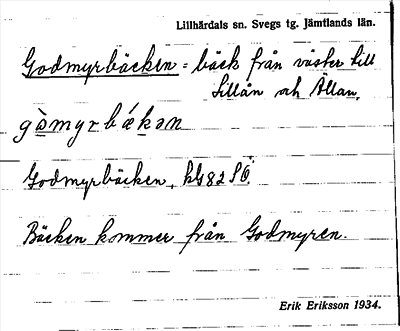 Lillhärdals sn. Svegs tg. Jämtlands län.
Godmyrbäcken = bäck från väster till
Lillån och Ällan.
Godmyrbäcken,
Bäcken kommer från Godmyren.
Erik Eriksson 1934.